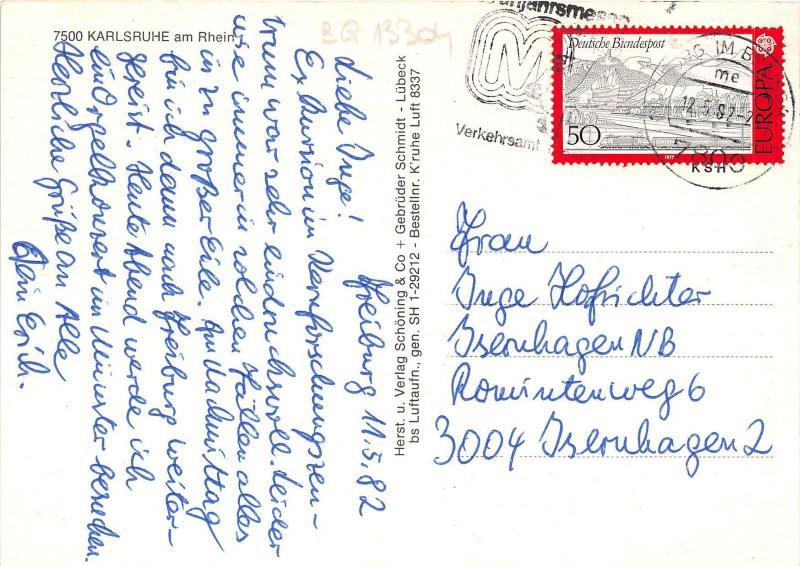 7500 KARLSRUHE am Rhein
BG 13304
Freiburg 11.5.82
Liebe Inge!
Exkursion im Kernforschungszen-
trum war sehr eindrucksvoll. Leider
wie immer in solchen Fällen alles
in zu großer Eile. Am Nachmittag
bin ich dann nach Freiburg weiter-
gereist. Heute Abend werde ich
ein Orgelkonzert im Münster besuchen.
Herzliche Grüße an Alle
Dein Erich.
Herst. u. Verlag Schöning & Co + Gebrüder Schmidt - Lübeck
bs Luftaufn., gen. SH 1-29212 - Bestellnr. K'ruhe Luft 8337
M
Verkehrsamt
Deutsche Bundespost
50
EUROPA
1977
G IM B
me
12.5.82-2
7800
Frau
Inge Hofrichter
Isernhagen NB
Romintenweg 6
3004 Isernhagen 2